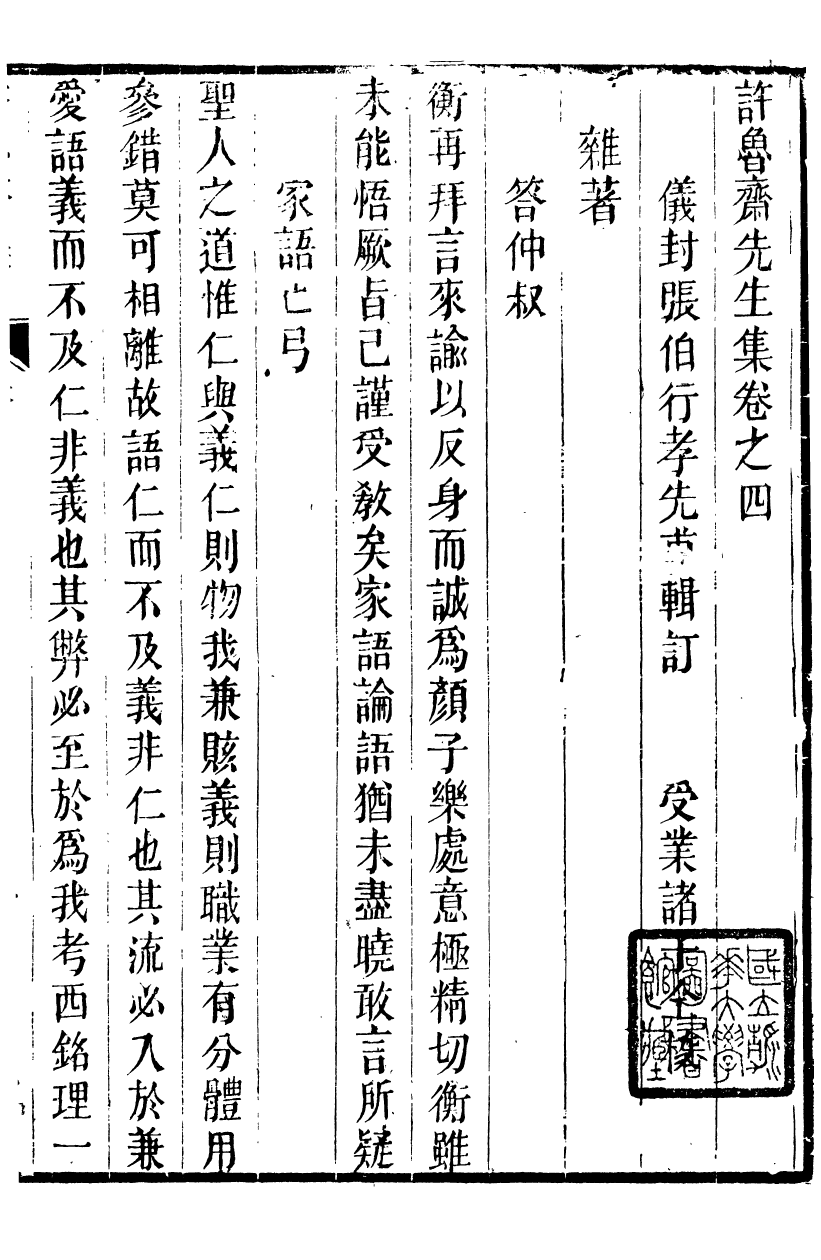 許魯齋先生集卷之四
儀封張伯行孝先甫輯訂　受業諸子仝校
雜著
答仲叔
衡再拜言來諭以反身而誠爲顏子樂處意極精切衡雖
未能悟厥旨已謹受敎矣家語論語猶未盡曉敢言所疑
家語亡弓
聖人之道惟仁與義仁則物我兼賅義則職業有分體用
參錯莫可相離故語仁而不及義非仁也其流必入於兼
愛語義而不及仁非義也其弊必至於爲我考西銘理一
國立清華大學圖書館藏